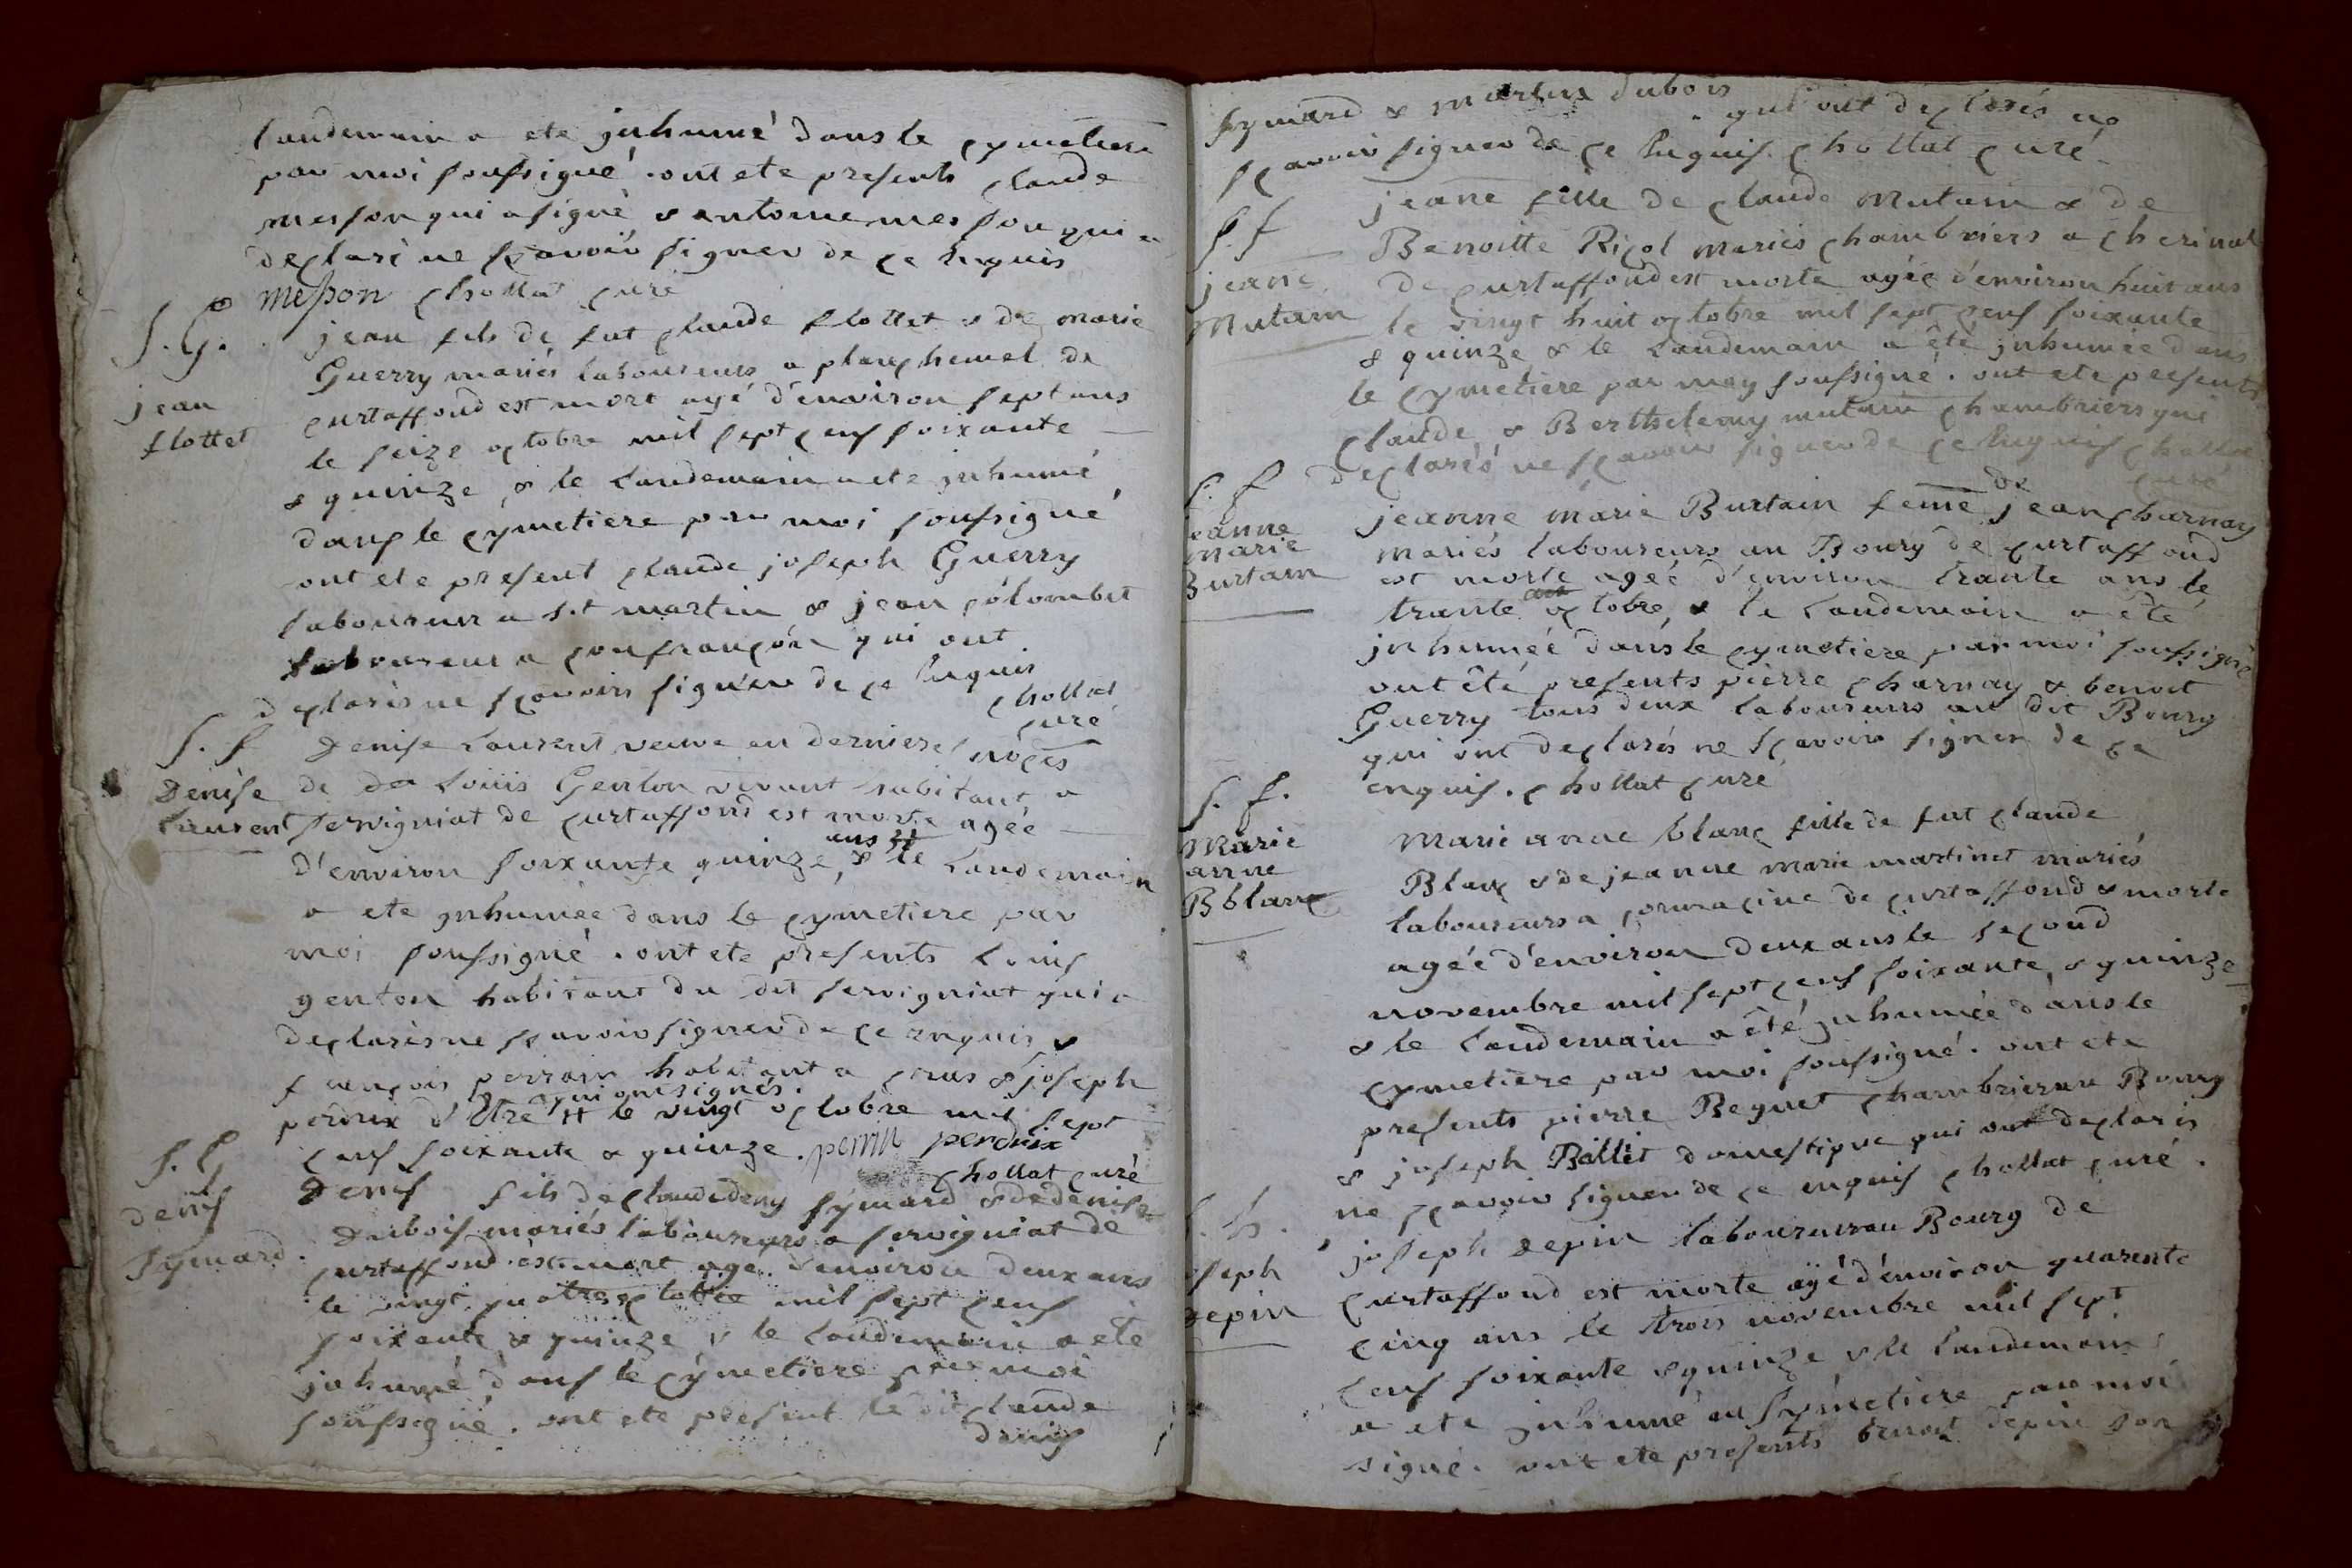 landemain a ete jnhumé dans le cymetiere
par moi soussigné. ont ete presents claude
messon qui a signé & antoine messon qui a
declaré ne scavoir signer de ce enquis
messon chollat curé
S. G.
jean
flottet
jean fils de fut claude flottet & de marie
Guerry mariés laboureurs a planchemel de
curtaffond est mort agé d'environ sept ans
le seize octobre mil sept cens soixante
& quinze & le landemain a ete jnhumé
dans le cymetiere par moi soussigné
ont ete present claude joseph Guerry
laboureur a s.t martin & jean colombet
laboureur a confrançon qui ont
declarés ne scavoirs signer de ce enquis
chollat
curé
S. f
Denise
Laurent
Denise Laurent veuve en dernieres nôces
de Louis Genton vivant habitant a
servigniat de curtaffond est morte agée
d'environ soixante quinze ans & le landemain
a ete jnhumée dans le cymetiere par
moi soussigné. ont ete presents Louis
genton habitant du dit servigniat qui a
declarés ne scavoir signer de ce enquis &
francois perrin habitant a cras & joseph
qui ont signés.
perdrix d'Etre # le vingt octobre mil sept
cens soixante & quinze. perrin perdrix
chollat curé
S. G
denis
Symard.
Denis fils de claude deny symard & de denise
Dubois mariés laboureurs a servigniat de
curtaffond est mort age d'environ deux ans
le vingt quatre octobre mil sept cens
soixante & quinze & le landemain a ete
jnhumé dans le cymetiere par moi
soussigné. ont ete present le dit claude
denis
symard & martin dubois qui ont declarés ne
scavoir signer de ce enquis. chollat curé
S. f
jeane
Mutain
jeane fille de claude Mutain & de
Benoitte Rigol mariés chambriers a cherinal
de curtaffond est morte agée d'environ huit ans
le vingt huit octobre mil sept cens soixante
& quinze & le landemain a été jnhumée dans
le cymetiere par moy soussigné. ont ete presents
claude & Berthelemy mutain chambriers qui
declarés ne scavoir signer de ce enquis chollat
curé
S. f
jeanne
marie
Burtain
jeanne marie Burtain feme de jean charnay
mariés laboureurs au Bourg de curtaffond
est morte agée d'environ trante ans le
trante octobre & le landemain a été
jnhumée dans le cymetiere par moi soussigné
ont été presents pierre charnay & benoit
Guerry tous deux laboureurs au dit Bourg
qui ont declarés ne scavoir signer de ce
enquis. chollat curé
S. f.
Marie
anne
Bblanc
Marie anne blanc fille de fut claude
Blanc & de jeanne marie martinet mariés
laboureurs a cormacine de curtaffond & morte
agée d'environ deux ans le second
novembre mil sept cens soixante & quinze
& le landemain a été jnhumée dans le
cymetiere par moi soussigné. ont ete
presents pierre Beguet chambrier au Bourg
& joseph Billet domestique qui ont declarés
ne scavoir signer de ce enquis chollat curé.
S. h.
joseph
depin
joseph depin laboureur au Bourg de
curtaffond est morte agé d'environ quarente
cinq ans le trois novembre mil sept
cens soixante & quinze & le landemain
a ete jnhumé au symetiere par moi
signé. ont ete presents benoit depin son